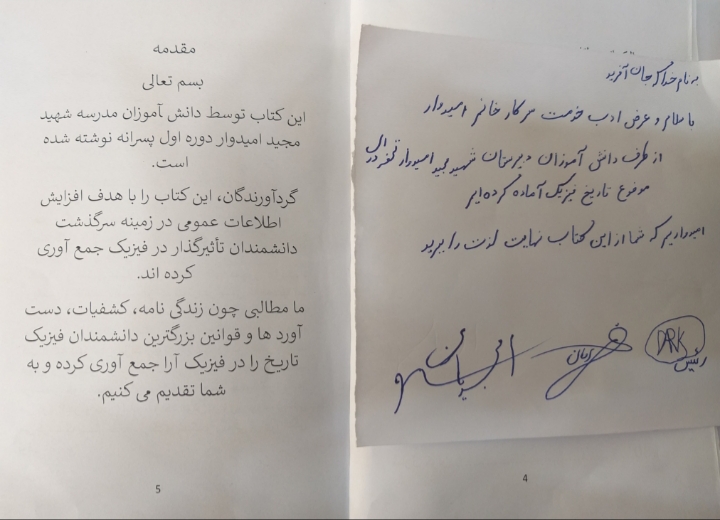 به نام خدا که جان آفرید
با سلام و عرض ادب خدمت سرکار خانم امیدوار
از طرف دانش آموزان دبیرستان شهید مجید امیدوار
موضوع تاریخ فیزیک آماده کرده ایم
امیدواریم که شما از این کتاب نهایت لذت را ببرید
DARK
رئیس
4
مقدمه
بسم تعالی
این کتاب توسط دانش آموزان مدرسه شهید
مجید امیدوار دوره اول پسرانه نوشته شده
است.
گردآورندگان، این کتاب را با هدف افزایش
اطلاعات عمومی در زمینه سرگذشت
دانشمندان تأثیرگذار در فیزیک جمع آوری
کرده اند.
ما مطالبی چون زندگی نامه، کشفیات، دست
آورد ها و قوانین بزرگترین دانشمندان فیزیک
تاریخ را در فیزیک آرا جمع آوری کرده و به
شما تقدیم می کنیم.
5